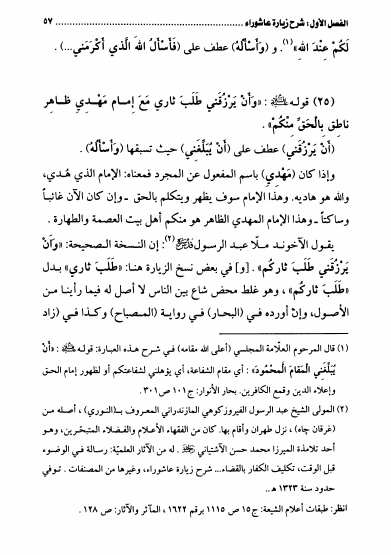 الفصل الأول: شرح زيارة عاشوراء ........................................ ٥٧
لَكُمْ عِنْدَ اللهِ»(١). و (وَأَسْأَلُهُ) عطف على (فَأَسْأَلُ اللهَ الَّذي أَكْرَمَني...) .
(٢٥) قوله : «وَأَنْ يَرْزُقَني طَلَبَ ثاري مَعَ إِمام مَهْدِي ظاهِر
ناطِق بِالْحَقِّ مِنْكُمْ» .
(أَنْ يَرْزُقَني) عطف على (أَنْ يُبَلِّغَني) حيث تسبقها (وَأَسْأَلُهُ) .
وإذا كان (مَهْدِي) باسم المفعول عن المجرد فمعناه: الإمام الذي هُدي،
والله هو هاديه. وهذا الإمام سوف يظهر ويتكلم بالحق ـ وإن كان الآن غائباً
وساكتاً ـ وهذا الإمام المهدي الظاهر هو منكم أهل بيت العصمة والطهارة .
يقول الآخوند ملّا عبد الرسول(٢): إن النسخة الصحيحة: «وَأَنْ
يَرْزُقَني طَلَبَ ثارِكُم» . [و] في بعض نسخ الزيارة هنا: «طَلَبَ ثاري» بدل
«طَلَبَ ثارِكُم» ، وهو غلط محض شاع بين الناس لا أصل له فيما رأينا من
الأصول، وإنْ أورده في (البحار) في رواية (المصباح) وكذا في (زاد
(١) قال المرحوم العلّامة المجلسي (أعلى الله مقامه) في شرح هذه العبارة: قوله : «أَنْ
يُبَلِّغَني المَقامَ الْمَحْمُودَ» : أي مقام الشفاعة، أي يؤهلني لشفاعتكم أو لظهور إمام الحق
وإعلاء الدين وقمع الكافرين. بحار الأنوار: ج١٠١ ص٣٠١.
(٢) المولى الشيخ عبد الرسول الفيروزكوهي المازندراني المعروف بـ(النوري) ، أصله من
(غرقان چاه) ، نزل طهران وأقام بها. كان من الفقهاء الأعلام والفضلاء المتبحّرين، وهو
أحد تلامذة الميرزا محمد حسن الآشتياني . له من الآثار العلميّة: رسالة في الوضوء
قبل الوقت، تكليف الكفار بالقضاء... شرح زيارة عاشوراء، وغيرها من المصنفات . توفي
حدود سنة ١٣٢٣ هـ..
انظر: طبقات أعلام الشيعة: ج١٥ ص ١١١٥ برقم ١٦٢٢ ، المآثر والآثار: ص ١٢٨ .